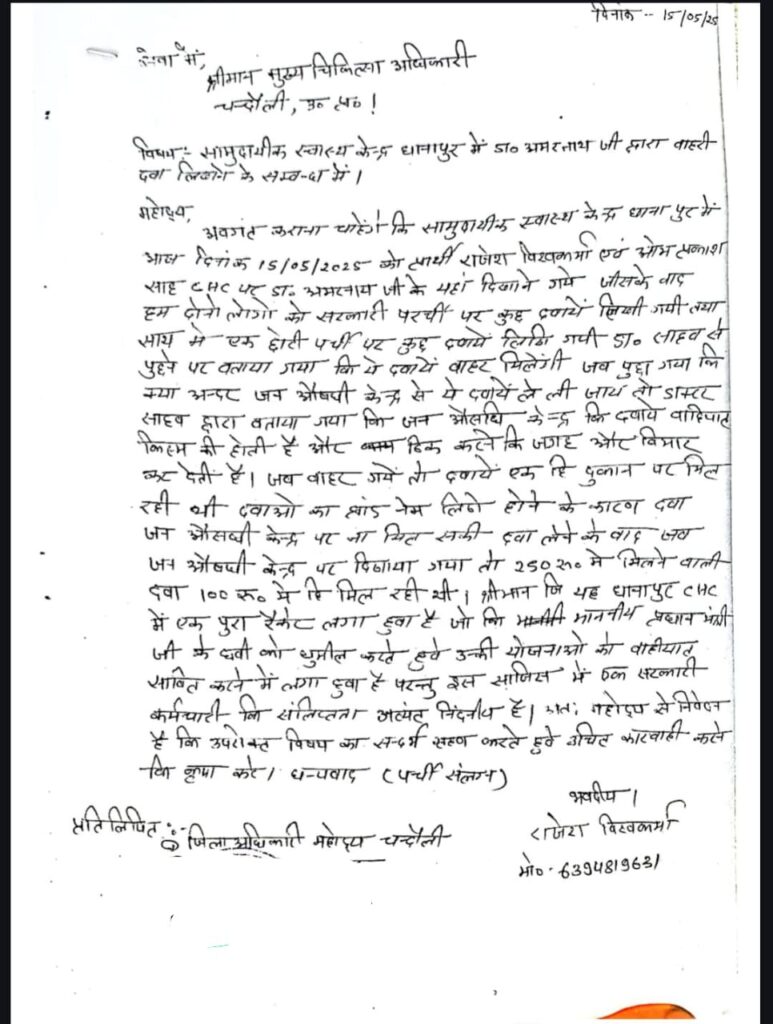 दिनांक -- 15/05/25
सेवा में,
श्रीमान मुख्य चिकित्सा अधिकारी
चन्दौली, उ० प्र० !
विषय :- सामुदायीक स्वास्थ्य केन्द्र धानापुर में डा० अमरनाथ जी द्वारा बाहरी
दवा लिखने के सम्बन्ध में ।
महोदय,
अवगत कराना चाहेंगे कि सामुदायीक स्वास्थ्य केन्द्र धानापुर में
आज दिनांक 15/05/2025 को प्रार्थी राजेश विश्वकर्मा एवं ओम प्रकाश
साह CHC पर डा० अमरनाथ जी के यहां दिखाने गये जीसके बाद
हम दोनो लोगों को सरकारी परची पर कुछ दवायें लिखी गयी तथा
साथ मे एक छोटी पर्ची पर कुछ दवायें लिखि गयी डा० साहब से
पुछने पर बताया गया कि ये दवायें बाहर मिलेंगी जब पुछा गया कि
क्या अन्दर जन औषधी केन्द्र से ये दवायें ले ली जाय तो डाक्टर
साहब द्वारा बताया गया कि जन औसधि केन्द्र कि दवाये वाहियात
किस्म की होती है और ठिक करने कि जगह और बिमार
कर देती है । जब बाहर गये तो दवायें एक हि दुकान पर मिल
रही थी दवाओ का ब्रांड नेम लिखे होने के कारण दवा
जन औसधी केन्द्र पर ना मिल सकी दवा लेने के बाद जब
जन औषधी केन्द्र पर दिखाया गया तो 250 रू० मे मिलने वाली
दवा 100 रू० मे हि मिल रही थी । श्रीमान जि यह धानापुर CHC
में एक पुरा रैकेट लगा हुवा है जो कि माननीय प्रधान मंत्री
जी के छवी को धुमील करते हुवे उनकी योजनाओ को वाहीयात
साबित करने में लगा हुवा है परन्तु इस साजिस में एक सरकारी
कर्मचारी कि संलिप्तता अत्यंत निंदनीय है । अतः महोदय से निवेदन
है कि उपरोक्त विषय का सन्दर्भ ग्रहण करते हुवे उचित कारवाही करने
कि कृपा करे । धन्यवाद (पर्ची संलग्न)
भवदीय ।
राजेश विश्वकर्मा
मो० - 6394819631
प्रतिलिपित :-
① जिला अधिकारी महोदय चन्दौली